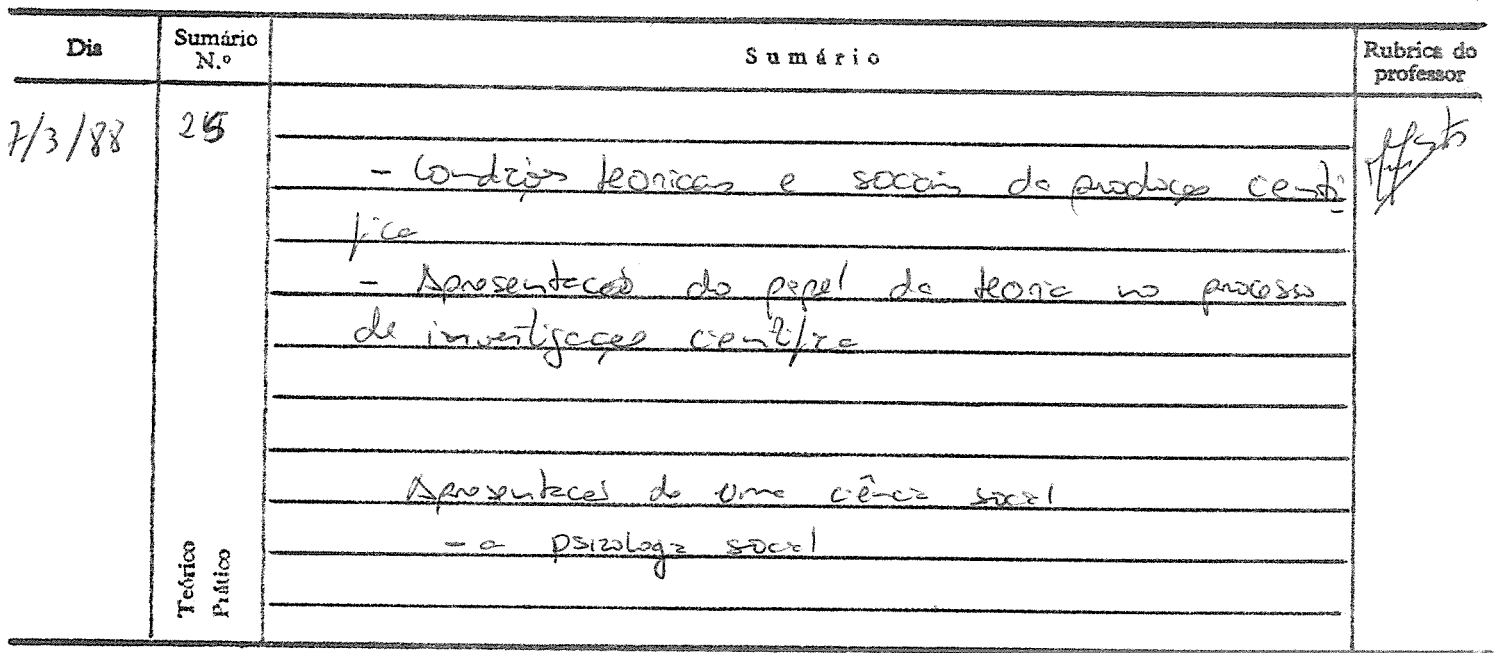 Dia Sumário N.º Sumário Rubrica do professor
7/3/88 25
- Condições teoricas e sociais da produção cientí
fica
- Apresentação do papel da teoria no processo
de investigação científica
Apresentação de uma ciência social
- a psicologia social
Teórico
Prático